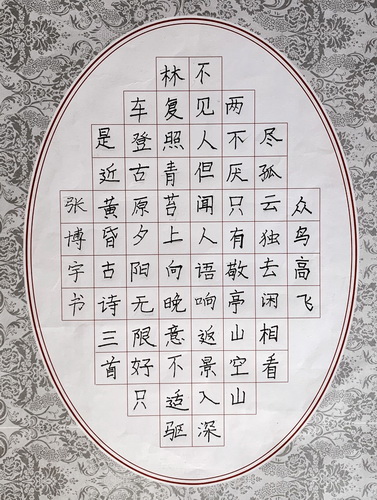 众鸟高飞
尽孤云独去闲相看
两不厌只有敬亭山空山
不见人但闻人语响返景入深
林复照青苔上向晚意不适驱
车登古原夕阳无限好只
是近黄昏古诗三首
张博宇书